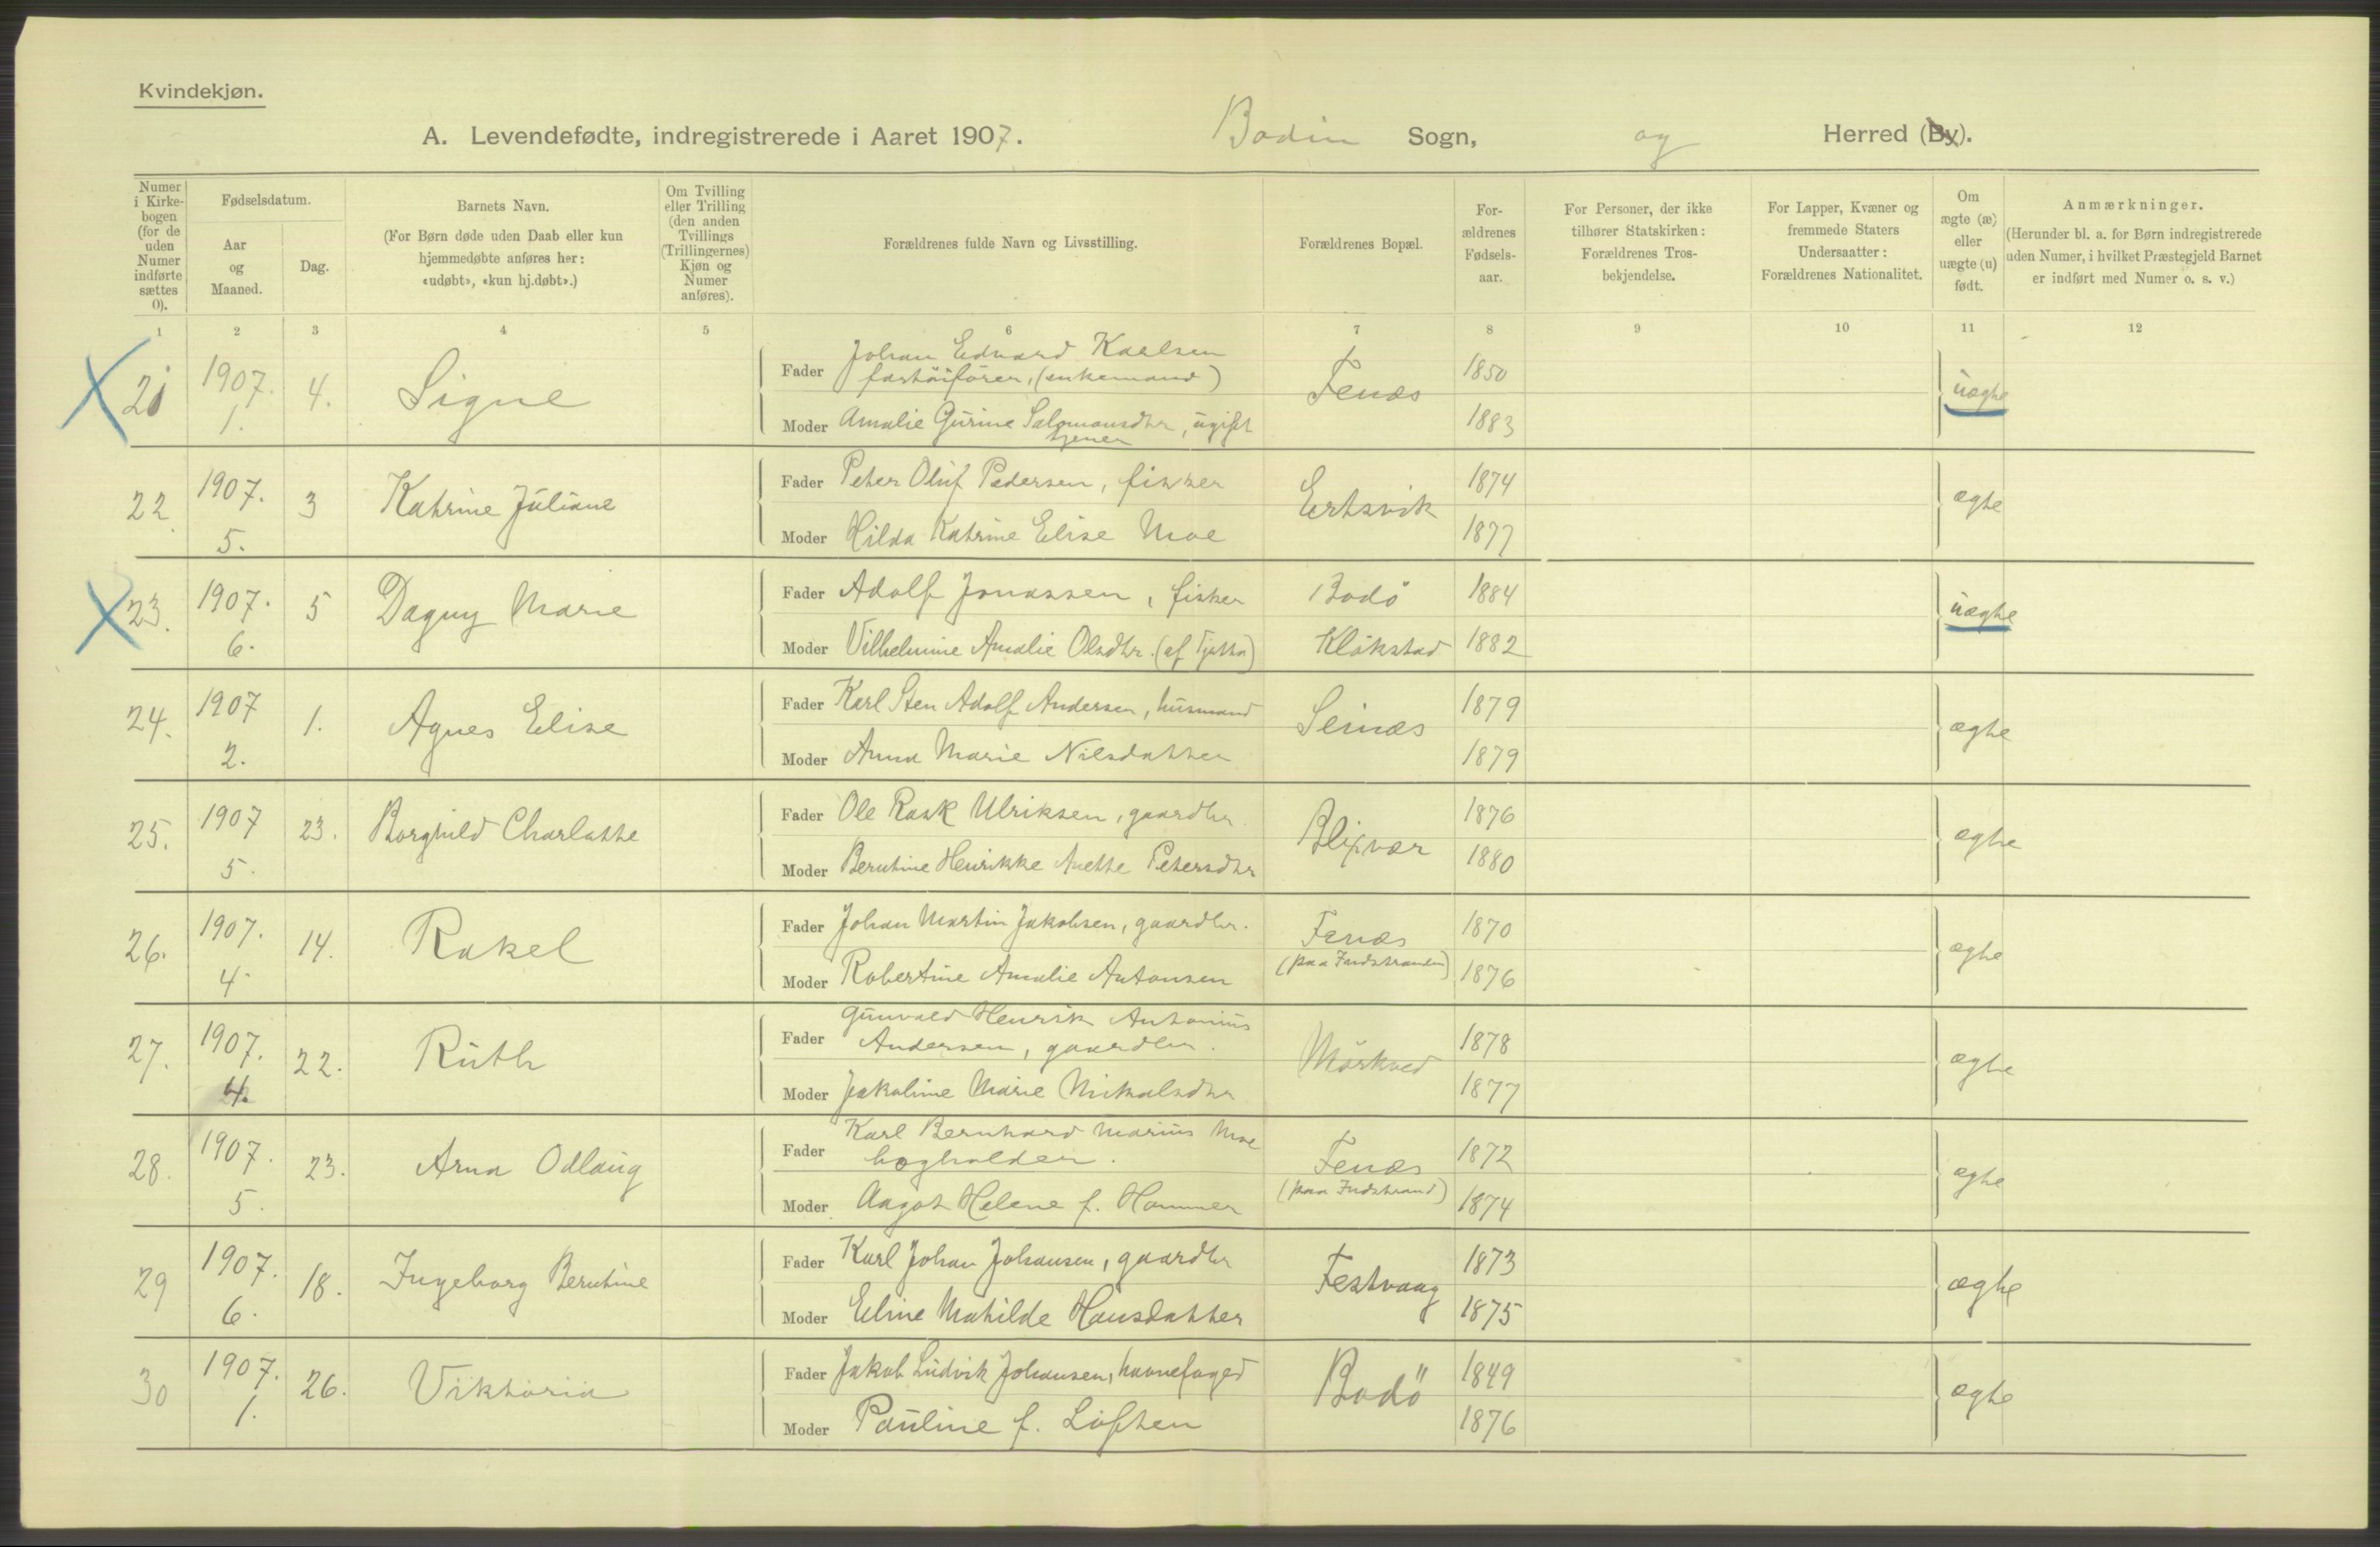 Kvindekjøn.
A. Levendefødte, indregistrerede i Aaret 1907. Bodin Sogn, og Herred (By).
Numer i Kirke-bogen (for de uden Numer indførte sættes 0).
Fødselsdatum.
Aar og Maaned.
Dag.
Barnets Navn.
(For Børn døde uden Daab eller kun hjemmedøbte anføres her: «udøbt», «kun hj.døbt».)
Om Tvilling eller Trilling (den anden Tvillings (Trillingernes) Kjøn og Numer anføres).
Forældrenes fulde Navn og Livsstilling.
Forældrenes Bopæl.
For-ældrenes Fødsels-aar.
For Personer, der ikke tilhører Statskirken: Forældrenes Tros-bekjendelse.
For Lapper, Kvæner og fremmede Staters Undersaatter: Forældrenes Nationalitet.
Om ægte (æ) eller uægte (u) født.
Anmærkninger.
(Herunder bl. a. for Børn indregistrerede uden Numer, i hvilket Præstegjeld Barnet er indført med Numer o. s. v.)
1 2 3 4 5 6 7 8 9 10 11 12
21 1907. 1. 4. Signe
Fader Johan Edvard Kaelsen
fartöiförer, (enkemand)
Moder Amalie Gurine Salomonsdtr, ugift
tjener
Fenes 1850 1883 uægte
22 1907. 5. 3 Katrine Juliane
Fader Peter Oluf Pedersen, fisker
Moder Hilda Katrine Elise Moe
Ertsvik 1874 1877 ægte
23. 1907. 6. 5 Dagny Marie
Fader Adolf Jonassen, fisker Bodö 1884
Moder Vilhelmine Amalie Olsdtr. (af Tjøtta) Klökstad 1882
uægte
24. 1907 2. 1. Agnes Elise
Fader Karl Sten Adolf Andersen, husmand
Moder Anna Marie Nilsdatter
Seines 1879 1879 ægte
25. 1907 5. 23. Borghild Charlotte
Fader Ole Rask Ulriksen, gaardbr.
Moder Berntine Henrikke Anette Petersdtr
Blixvær 1876 1880 ægte
26. 1907. 4. 14. Rakel
Fader Johan Martin Jakobsen, gaardbr.
Moder Robertine Amalie Antonsen
Fenes
(paa Indstranden)
1870 1876 ægte
27. 1907. 4. 22. Ruth
Fader Gunvald Henrik Antonius
Andersen, gaardbr.
Moder Jakobine Marie Nikolsdtr
Mörkved 1878 1877 ægte
28. 1907. 5. 23. Arna Odlaug
Fader Karl Bernhard Marius Moe
bogholder.
Moder Aagot Helene f. Hammer
Fenes
(paa Indstrand)
1872 1874 ægte
29 1907. 6. 18. Ingeborg Berntine
Fader Karl Johan Johansen, gaardbr
Moder Eline Mathilde Hansdatter
Festvaag 1873 1875 ægte
30 1907. 1. 26. Viktoria
Fader Jakob Ludvik Johansen, havnefoged
Moder Pauline f. Löften
Bodö 1849 1876 ægte